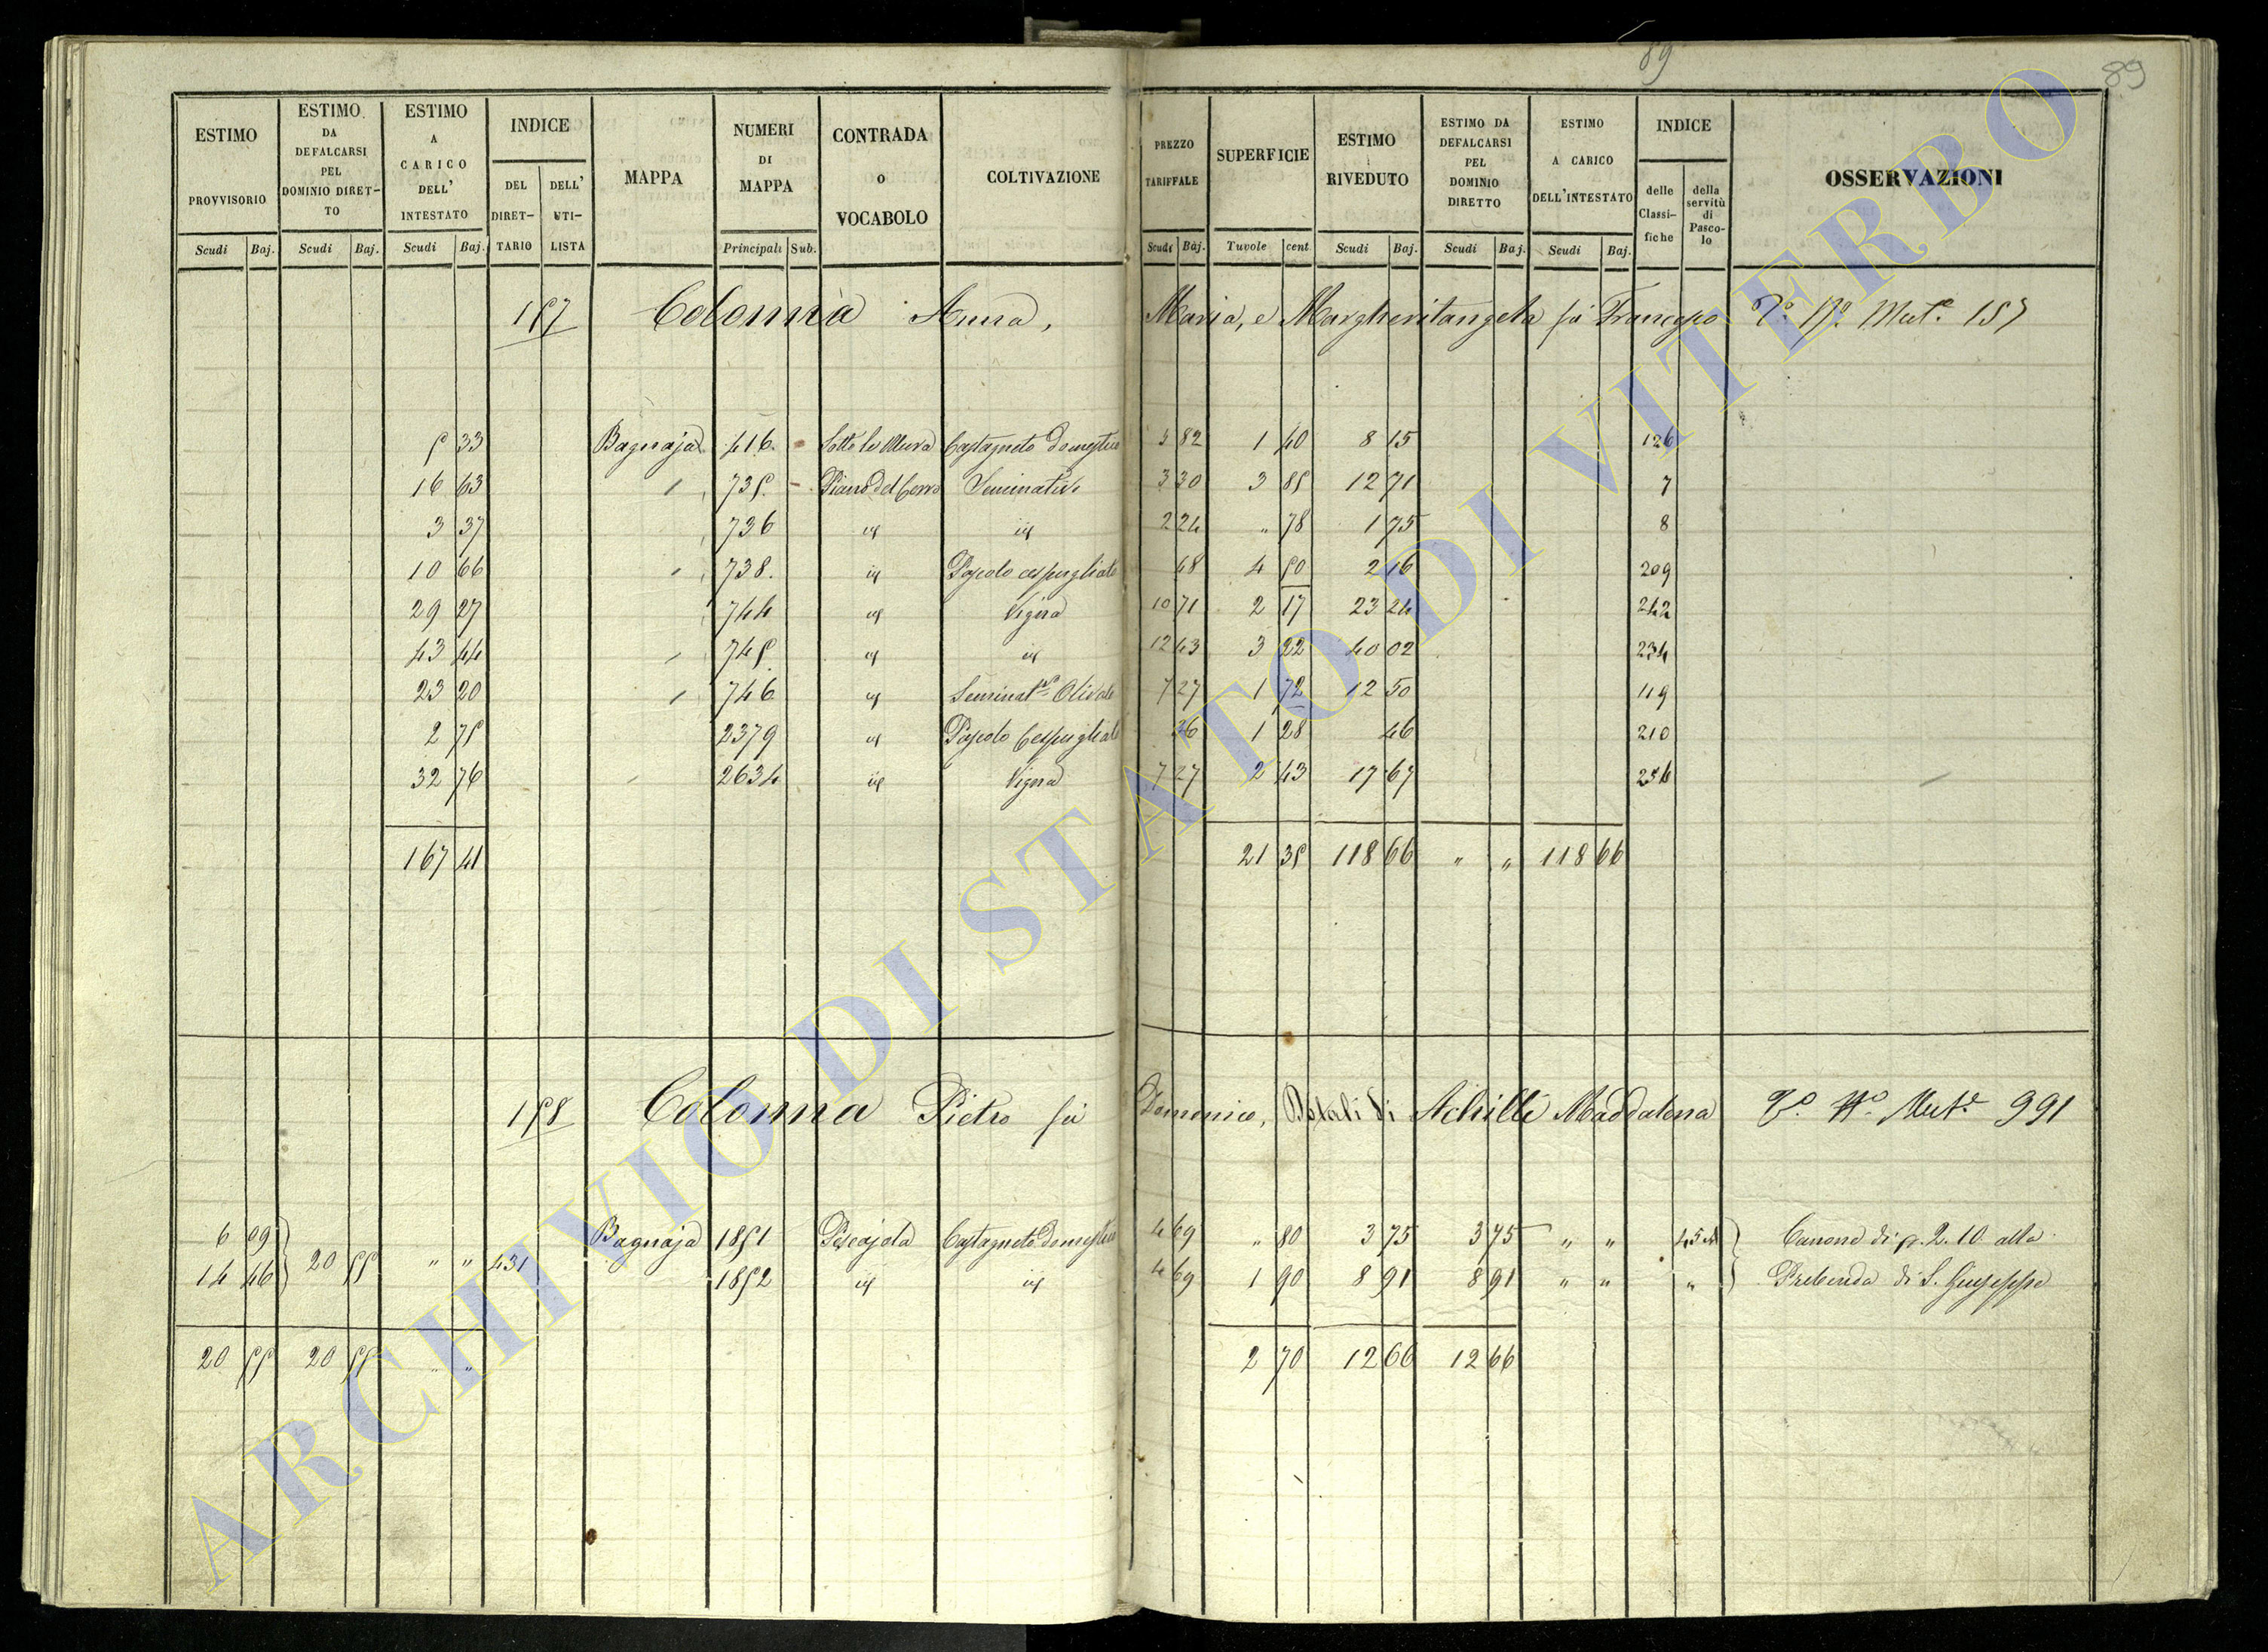 89
89
ESTIMO PROVVISORIO | ESTIMO DA DEFALCARSI PEL DOMINIO DIRETTO | ESTIMO A CARICO DELL' INTESTATO | INDICE DEL DIRETTARIO | DELL' UTILISTA | MAPPA | NUMERI DI MAPPA | CONTRADA O VOCABOLO | COLTIVAZIONE | PREZZO TARIFFALE | SUPERFICIE | ESTIMO RIVEDUTO | ESTIMO DA DEFALCARSI PEL DOMINIO DIRETTO | ESTIMO A CARICO DELL'INTESTATO | INDICE delle Classifiche | della servitù di Pascolo | OSSERVAZIONI
Scudi Baj. | Scudi Baj. | Scudi Baj. | Principali Sub. | Scudi Baj. | Tavole cent | Scudi Baj. | Scudi Baj. | Scudi Baj.
157 Colonna Anna, Maria, e Margheritangela fù Francesco V.o N.o Mut.e 157
5 33 Bagnaja 416 Sotto le Mura Castagneto domestico 5 82 1 40 8 15 126
16 63 735 Piano del Cerro Seminativo 3 30 3 85 12 71 7
3 37 736 id id 2 24 " 78 1 75 8
10 66 738 id Pascolo cespugliato 48 4 50 2 16 209
29 27 744 id Vigna 10 71 2 17 23 24 242
43 44 745 id id 12 43 3 22 40 02 234
23 20 746 id Seminat.o Olivato 7 27 1 72 12 50 119
2 75 2379 id Pascolo Cespugliato 36 1 28 46 210
32 76 2634 id Vigna 7 27 2 43 17 67
167 41 21 35 118 66 " " 118 66
158 Colonna Pietro fù Domenico, Dotali di Achilli Maddalena V.o N.o Mut.e 991
6 09 20 55 " " 431 Bagnaja 1851 Pescajola Castagneto domestico 4 69 " 80 3 75 3 75 " " Canone di p. 2.10 alla
14 46 1852 id id 4 69 1 90 8 91 8 91 " " " Prebenda di S. Giuseppe
20 55 20 55 " " 2 70 12 66 12 66
ARCHIVIO DI STATO DI VITERBO